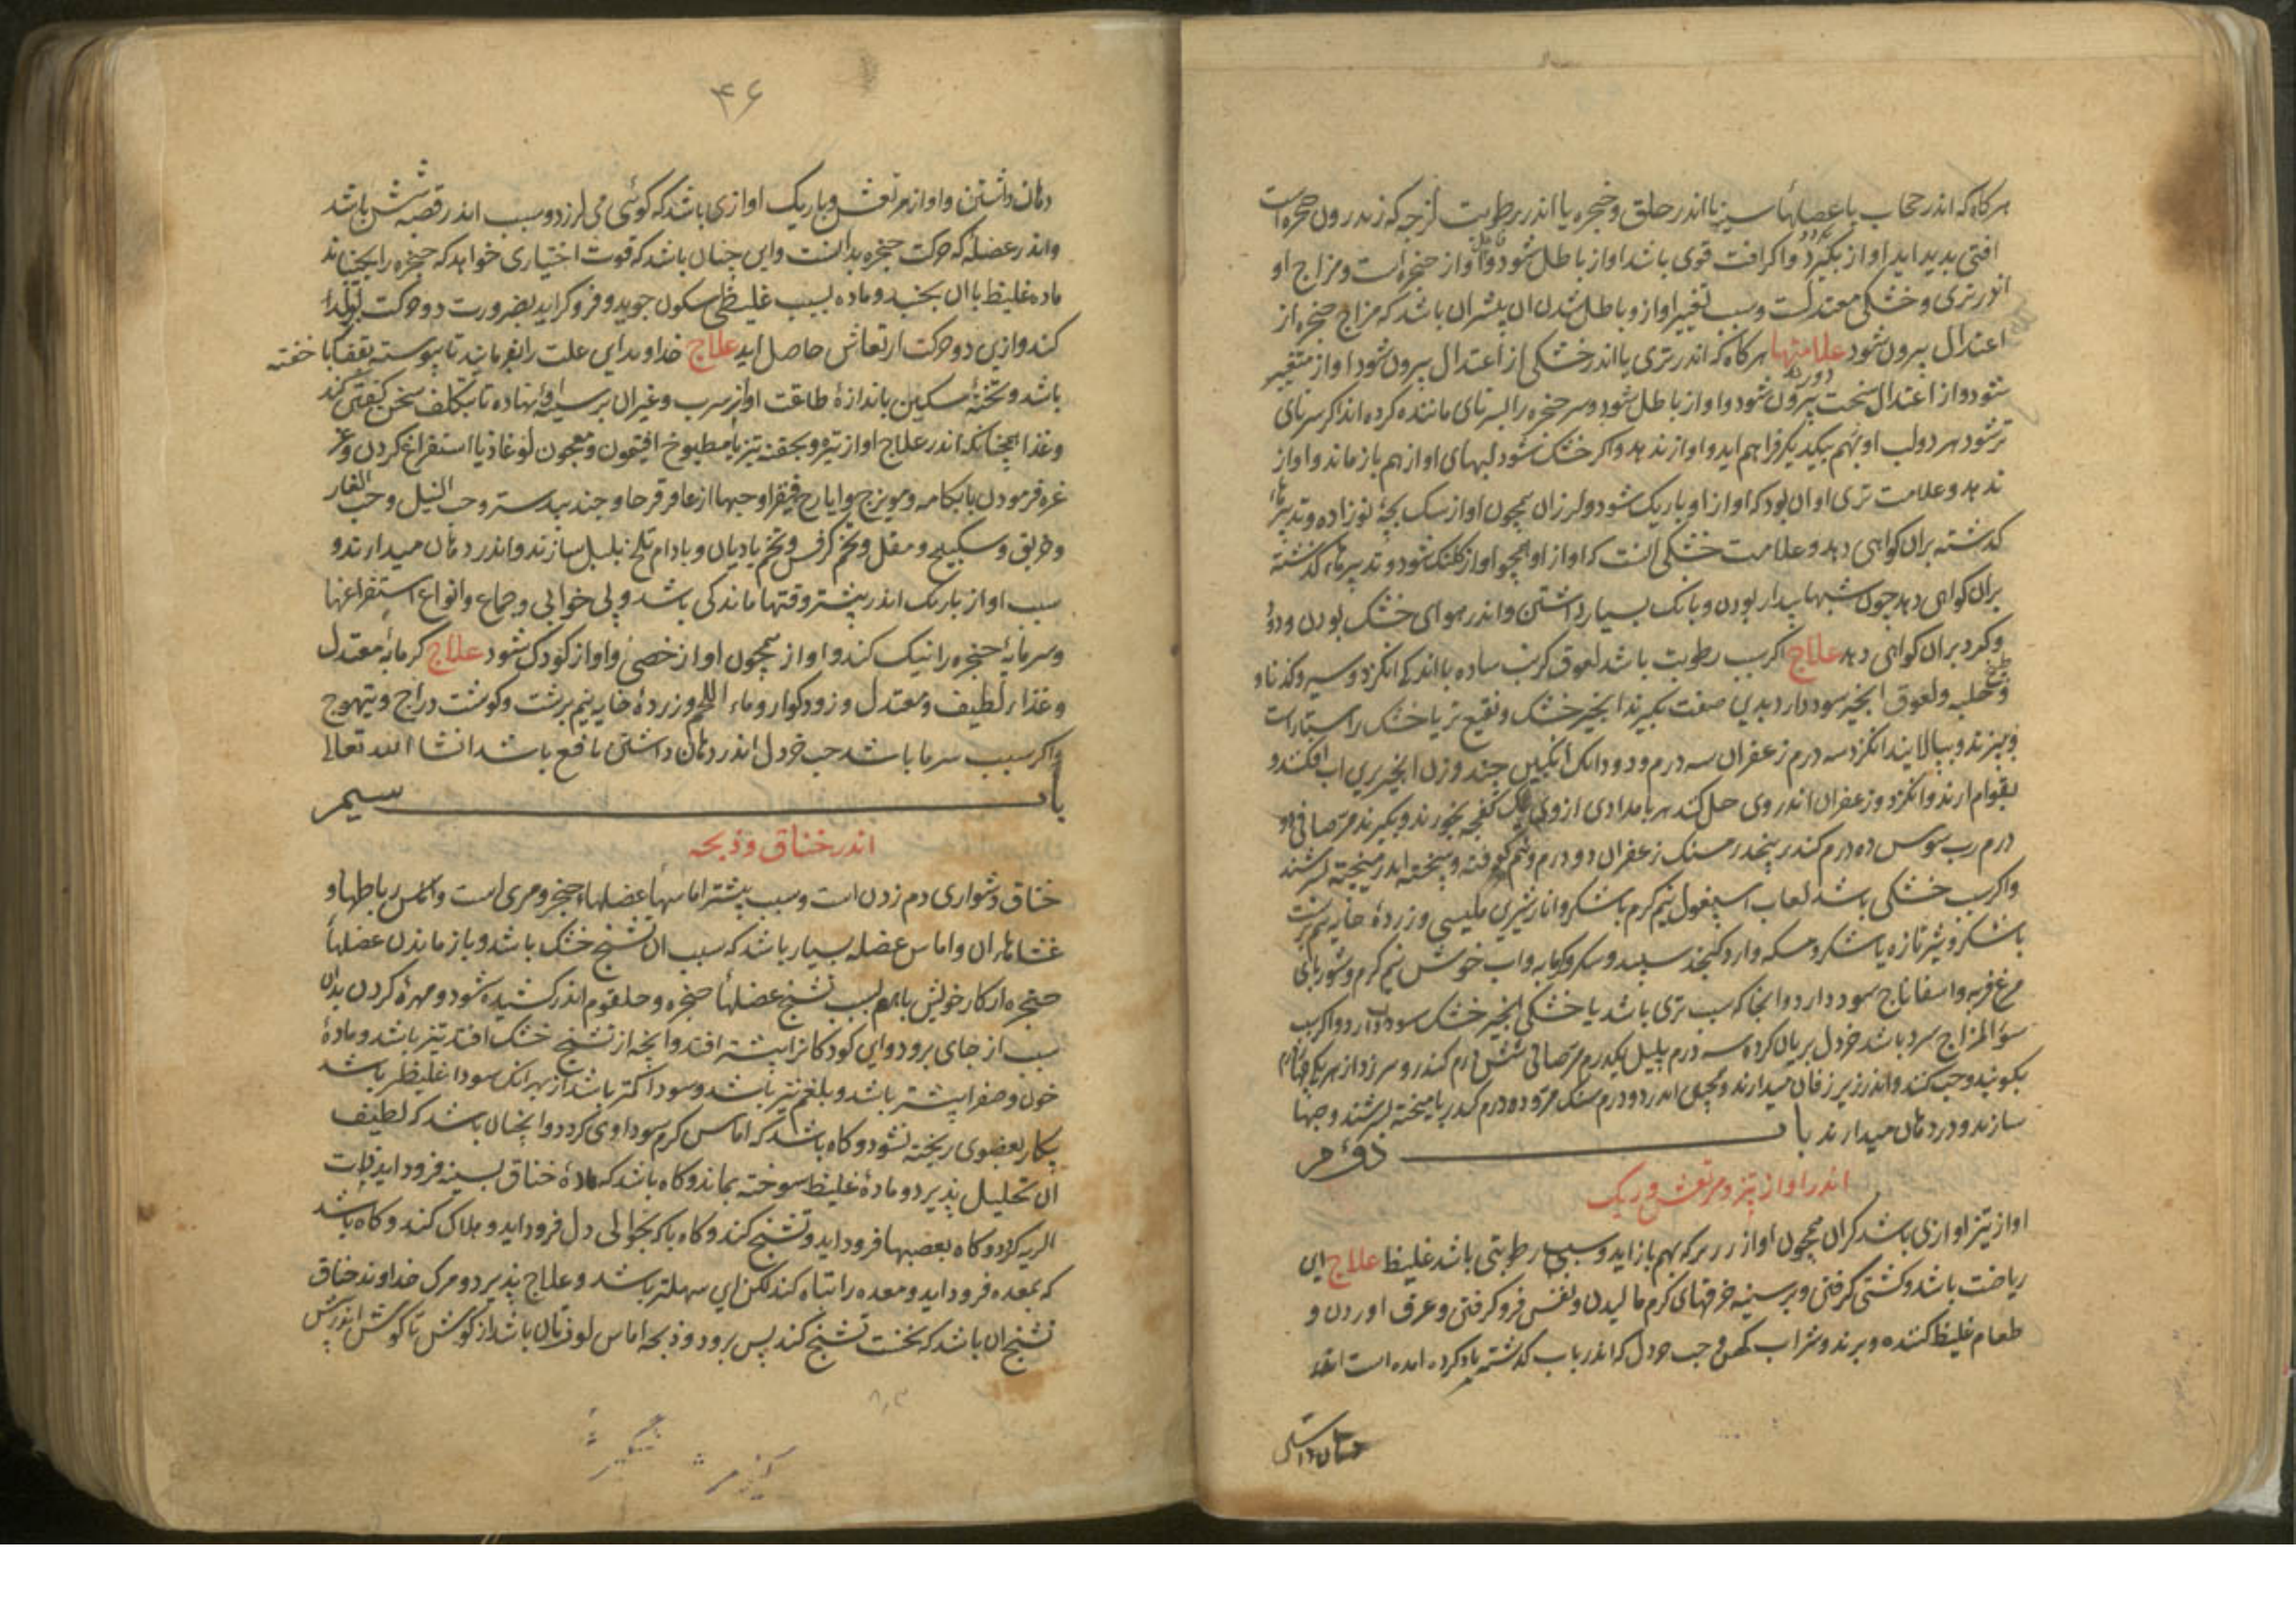 هرکاه که اندر حجاب یا عضلهاء سینه یا اندر حلق و حنجره یا اندر رطوبت لزجه که اندرون حنجره است
افتی بدید اید اواز بکیرد و اکر افت قوی باشد اواز باطل شود و اواز حنجره است و مزاج او
اندر تری و خشکی معتدلست و سبب تغییر اواز و باطل شدن ان بیشتر ان باشد که مزاج حنجره از
اعتدال بیرون شود علامتها هرکاه که اندر تری یا اندر خشکی از اعتدال بیرون شود اواز متغیر
شود و از اعتدال سخت بیرون شود و اواز باطل شود و سر حنجره را بسرنای ماننده کرده اند اکر سرنای
تر شود هر دو لب او بهم بیکدیکر فراهم اید و اواز ندهد و اکر خشک شود لبهای او از هم باز ماند و اواز
ندهد و علامت تری او ان بود که اواز او باریک شود و لرزان همچون اواز سک بچهٔ نوزاده و تدبیرهاء
کذشته بران کواهی دهد و علامت خشکی انست که اواز او همچو اواز کلنک شود و تدبیرهاء کذشته
بران کواهی دهد چون شبها بیدار بودن و بانک بسیار داشتن و اندر هوای خشک بودن و دود
و کرد بران کواهی دهد علاج اکر سبب رطوبت باشد لعوق کرنب ساده با اندکی انکزد و سیر و کندنا و
طبیخ حلبه و لعوق انجیر سود دارد بدین صفت بکیرند انجیر خشک و نقیع تر یا خشک راست
و بپزند و بپالایند انکزد سه درم زعفران سه درم و دو دانک انکبین چند وزن انجیر برین اب افکنند و
بقوام ارند و انکزد و زعفران اندر وی حل کنند هر بامدادی از وی یک کفجه بخورند و بکیرند مر صافی دو
درم رب سوس ده درم کندر پنجدرمسنک زعفران دو درم و نیم کوفته و بیخته اندر میپخته بسرشند
و اکر سبب خشکی باشد لعاب اسپغول نیم کرم با شکر و انار شیرین ملیسی و زردهٔ خایه نیم برشت
با شکر و شیر تازه با شکر و مسکه و ارد کنجد سپید و شکر و کرمابه و اب خوش نیم کرم و شوربای
مرغ فربه و اسفاناج سود دارد و انجا که سبب تری باشد یا خشکی انجیر خشک سود دارد و اکر سبب
سوء المزاج سرد باشد خردل بریان کرده سه درم پلپل یکدرم مر صافی شش درم کندر و سرزد از هر یکی
بکوبند و حب کنند و اندر زیر زفان میدارند و همچنین اندر دو درم سنک مر و ده درم کندر با میپخته بسرشند و حبها
سازند و در دهان میدارند باب دوم
اندر اواز تیز و مرتعش و باریک
اواز تیز اوازی باشد کران همچون اواز که بهم باز اید و سبب رطوبتی باشد غلیظ علاج این
ریاضت باشد و کشتی کرفتن و بر سینه خرقهای کرم مالیدن و نفس فرو کرفتن و عرق اوردن و
طعام غلیظ کننده و برند و شراب کهن و حب خردل که اندر باب کذشته یاد کرده امده است اندر
دهان داشتن
۴۶
دهان داشتن و اواز مرتعش و باریک اوازی باشد که کوئی می لرزد و سبب اندر قصبه شش باشد
و اندر عضلهٔ که حرکت حنجره بدانست و این چنان باشد که قوت اختیاری خواهد که حنجره را بجنباند
ماده غلیظ با ان بجنبد و ماده بسبب غلیظی سکون جوید و فرو کراید بضرورت دو حرکت تولد
کند و ازین دو حرکت ارتعاش حاصل اید علاج خداوند این علت را بفرمایند تا پیوسته بقفا باز خفته
باشد و تختهٔ سنکین باندازهٔ طاقت او از سرب و غیر ان بر سینهٔ او نهاده تا بتکلف سخن کفتن کند
و غذا همچنانکه اندر علاج اواز تیره و بحقنه تیز یا مطبوخ افیتمون و معجون لوغاذیا استفراغ کردن و غر
غره فرمودن بابکامه و مویزج و ایارج فیقرا و حبها از عاقرقرحا و جندبیدستر و حب النیل و حب الغار
و خربق و سکبینج و مقل و تخم کرفس و تخم بادیان و بادام تلخ بلبل سازند و اندر دهان میدارند و
سبب اواز باریک اندر بیشتر وقتها ماندکی باشد و بی خوابی و جماع و انواع استفراغها
و سرمایهٔ حنجره را نیک کند و اواز همچون اواز خصی و اواز کودک شود علاج کرمابهٔ معتدل
و غذاء لطیف و معتدل و زود کوار و ماء اللحم و زردهٔ خایه نیم برشت و کوشت دراج و تیهوج
و اکر سبب سرما باشد حب خردل اندر دهان داشتن نافع باشد انشا الله تعالی
باب سیم
اندر خناق و ذبحه
خناق دشواری دم زدن است و سبب بیشتر اماسهاء عضلهاء حنجره و مری است و اماس رباطها و
غشاهاء ان و اماس عضله بسیار باشد که سبب ان تشنج خشک باشد و باز ماندن عضلهاء
حنجره از کار خویش یا هم بسبب تشنج عضلهاء حنجره و حلقوم اندر کشیده شود و مهرهٔ کردن بدان
سبب از جای برود و این کودکانرا بیشتر افتد و انچه از تشنج خشک افتد تیز باشد و مادهٔ
خون و صفرا بیشتر باشد و بلغم نیز باشد و سودا کمتر باشد از بهر انک سودا غلیظتر باشد
بیکبار بعضوی ریخته نشود و کاه باشد که اماس کرم سوداوی کردد و انچنان باشد که لطیف
ان تحلیل پذیرد و مادهٔ غلیظ سوخته بماند و کاه باشد که مادهٔ خناق بسینه فرود اید ذات
الریه کردد و کاه بعصبها فرود اید و تشنج کند و کاه باشد که بحوالی دل فرود اید و هلاک کند و کاه باشد
که بمعده فرود اید و معده را تباه کند لکن این سهلتر باشد و علاج پذیرد و مرک خداوند خناق
تشنج ان باشد که نخست تشنج کند پس برود و ذبحه اماس لوزتان باشد از کوش تا کوش